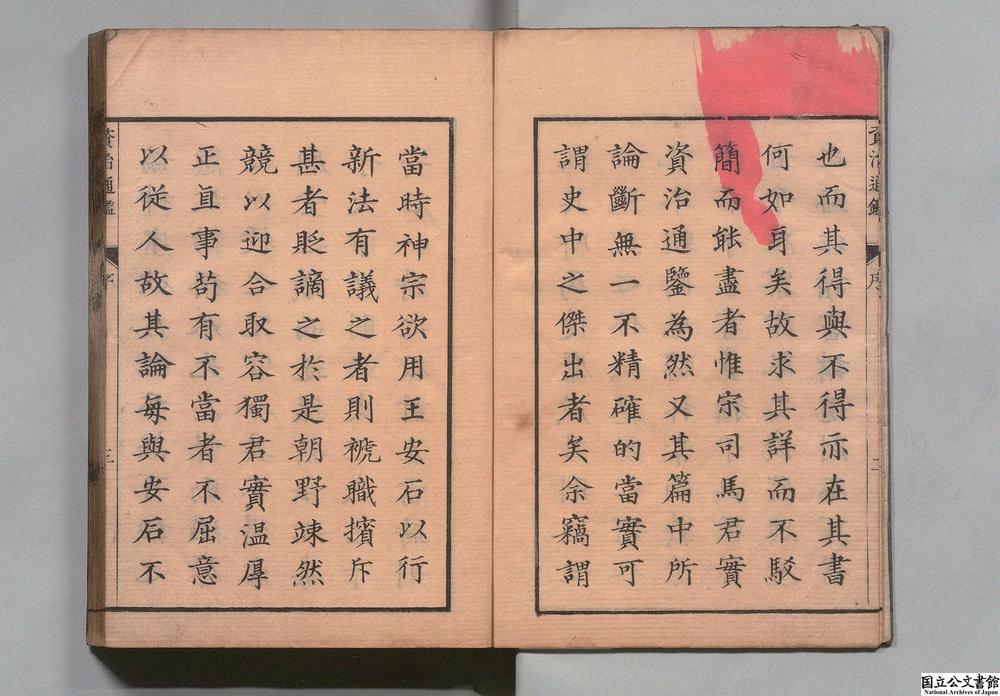 也而其得與不得亦在其書
何如耳矣故求其詳而不駁
簡而能盡者惟宋司馬君實
資治通鑒為然又其篇中所
論斷無一不精確的當實可
謂史中之傑出者矣余竊謂
資治通鑑
序
二
當時神宗欲用王安石以行
新法有議之者則褫職擯斥
甚者貶謫之於是朝野竦然
競以迎合取容獨君實温厚
正直事苟有不當者不屈意
以從人故其論每與安石不
資治通鑑
序
三
国立公文書館
National Archives of Japan